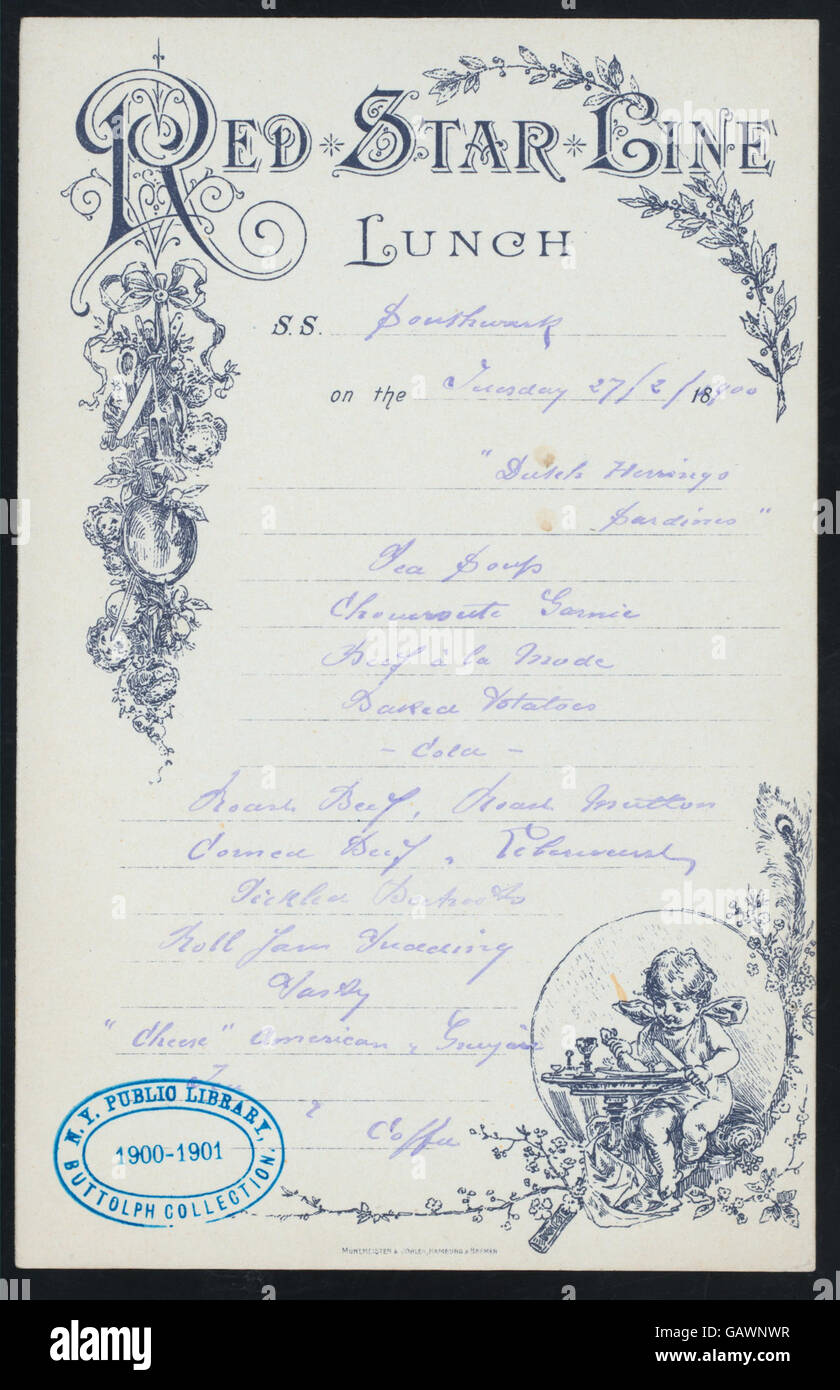 RED * STAR * LINE
LUNCH
S.S. Southwark
on the Tuesday 27/2/ 18900
"Dutch Herrings
Sardines"
Pea Soup
Choucroute Garnie
Beef à la Mode
Baked Potatoes
- Cold -
Roast Beef, Roast Mutton
Corned Beef, Leberwurst,
Pickled Beetroots
Roll Jam Pudding
Pastry
"Cheese" American, Gruyère
Tea
Coffee
N.Y. PUBLIC LIBRARY,
1900-1901
BUTTOLPH COLLECTION.
MÜHLMEISTER & JOHLER, HAMBURG & BREMEN
alamy
alamy
Image ID: GAWNWR
www.alamy.com